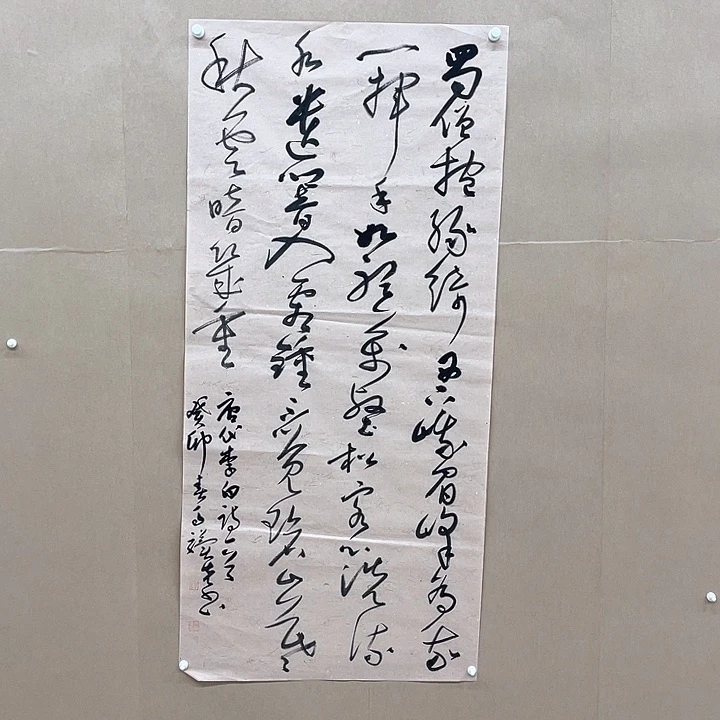 蜀僧抱綠綺西下峨眉峰為我
一揮手如聽萬壑松客心洗流
水遺響入霜鐘不覺碧山暮
秋雲暗幾重
唐代李白詩一首
癸卯春